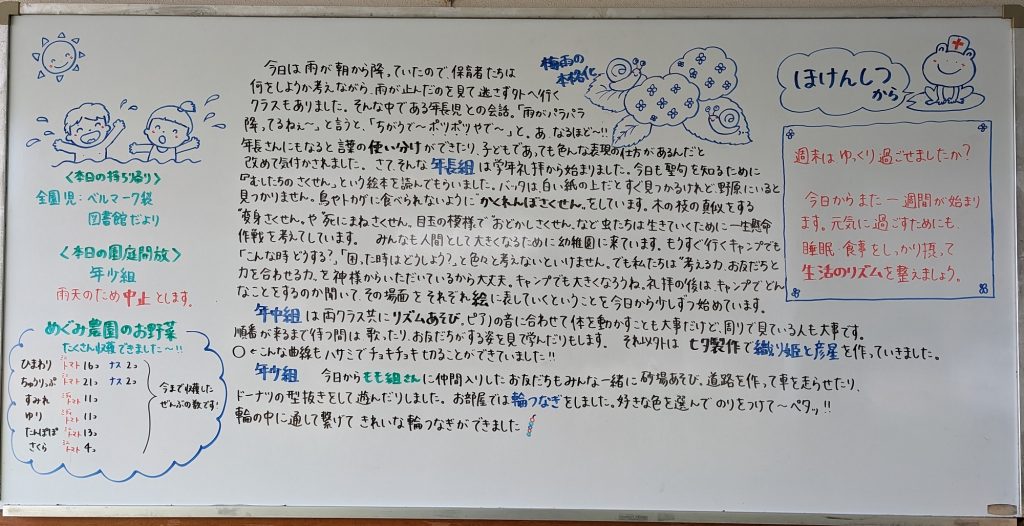 〈本日の持ち帰り〉
全園児：ベルマーク袋
図書館だより
〈本日の園庭開放〉
年少組
雨天のため中止とします。
めぐみ農園のお野菜
たくさん収穫できました〜!!
ひまわり ミニトマト 16コ ナス 2コ
ちゅうりっぷ ミニトマト 21コ ナス 2コ
すみれ ミニトマト 11コ
ゆり ミニトマト 11コ
たんぽぽ ミニトマト 13コ
さくら ミニトマト 4コ
今まで収穫した
ぜんぶの数です!
梅雨の
本格化
今日は雨が朝から降っていたので、保育者たちは
何をしようか考えながら、雨が止んだのを見て逃さず外へ行く
クラスもありました。そんな中である年長児との会話。「雨がパラパラ
降ってるねぇ〜」と言うと、「ちがうで〜ポツポツやで〜」と。あ、なるほど〜!!
年長さんにもなると言葉の使い分けができたり、子どもであっても色んな表現の仕方があるんだと
改めて気付かされました。さて、そんな年長組は学年礼拝から始まりました。今日も聖句を知るために
『むしたちのさくせん』という絵本を読んでもらいました。バッタは白い紙の上だとすぐ見つかるけれど、野原にいると
見つかりません。鳥やトカゲに食べられないように"かくれんぼさくせん"をしています。木の枝の真似をする
"変身さくせん"や"死にまねさくせん"、目玉の模様で"おどかしさくせん"など虫たちは生きていくために一生懸命
作戦を考えてしています。 みんなも人間として大きくなるために幼稚園に来ています。もうすぐ行くキャンプでも
「こんな時どうする?」「困った時はどうしよう?」と色々と考えないといけません。でも私たちは"考える力、お友だちと
力を合わせる力"を神様からいただいているから大丈夫。キャンプでも大きくなろうね。礼拝の後は、キャンプでどん
なことをするのか聞いて、その場面をそれぞれ絵に表していくということを今日から少しずつ始めています。
年中組は両クラス共にリズムあそび。ピアノの音に合わせて体を動かすことも大事だけど、周りで見ている人も大事です。
順番が来るまで待つ間は歌ったり、お友だちがする姿を見て学んだりもします。 それ以外は七夕製作で織り姫と彦星を作っていきました。
○←こんな曲線もハサミでチョキチョキ切ることができていました!!
年少組 今日からもも組さんに仲間入りしたお友だちもみんな一緒に砂場あそび、道路を作って車を走らせたり、
ドーナツの型抜きをして遊んだりしました。お部屋では輪つなぎをしました。好きな色を選んでのりをつけて〜ペタッ!!
輪の中に通して繋げてきれいな輪つなぎができました
ほけんしつ
から
週末はゆっくり過ごせましたか?
今日からまた一週間が始まり
ます。元気に過ごすためにも、
睡眠・食事をしっかり摂って
生活のリズムを整えましょう。